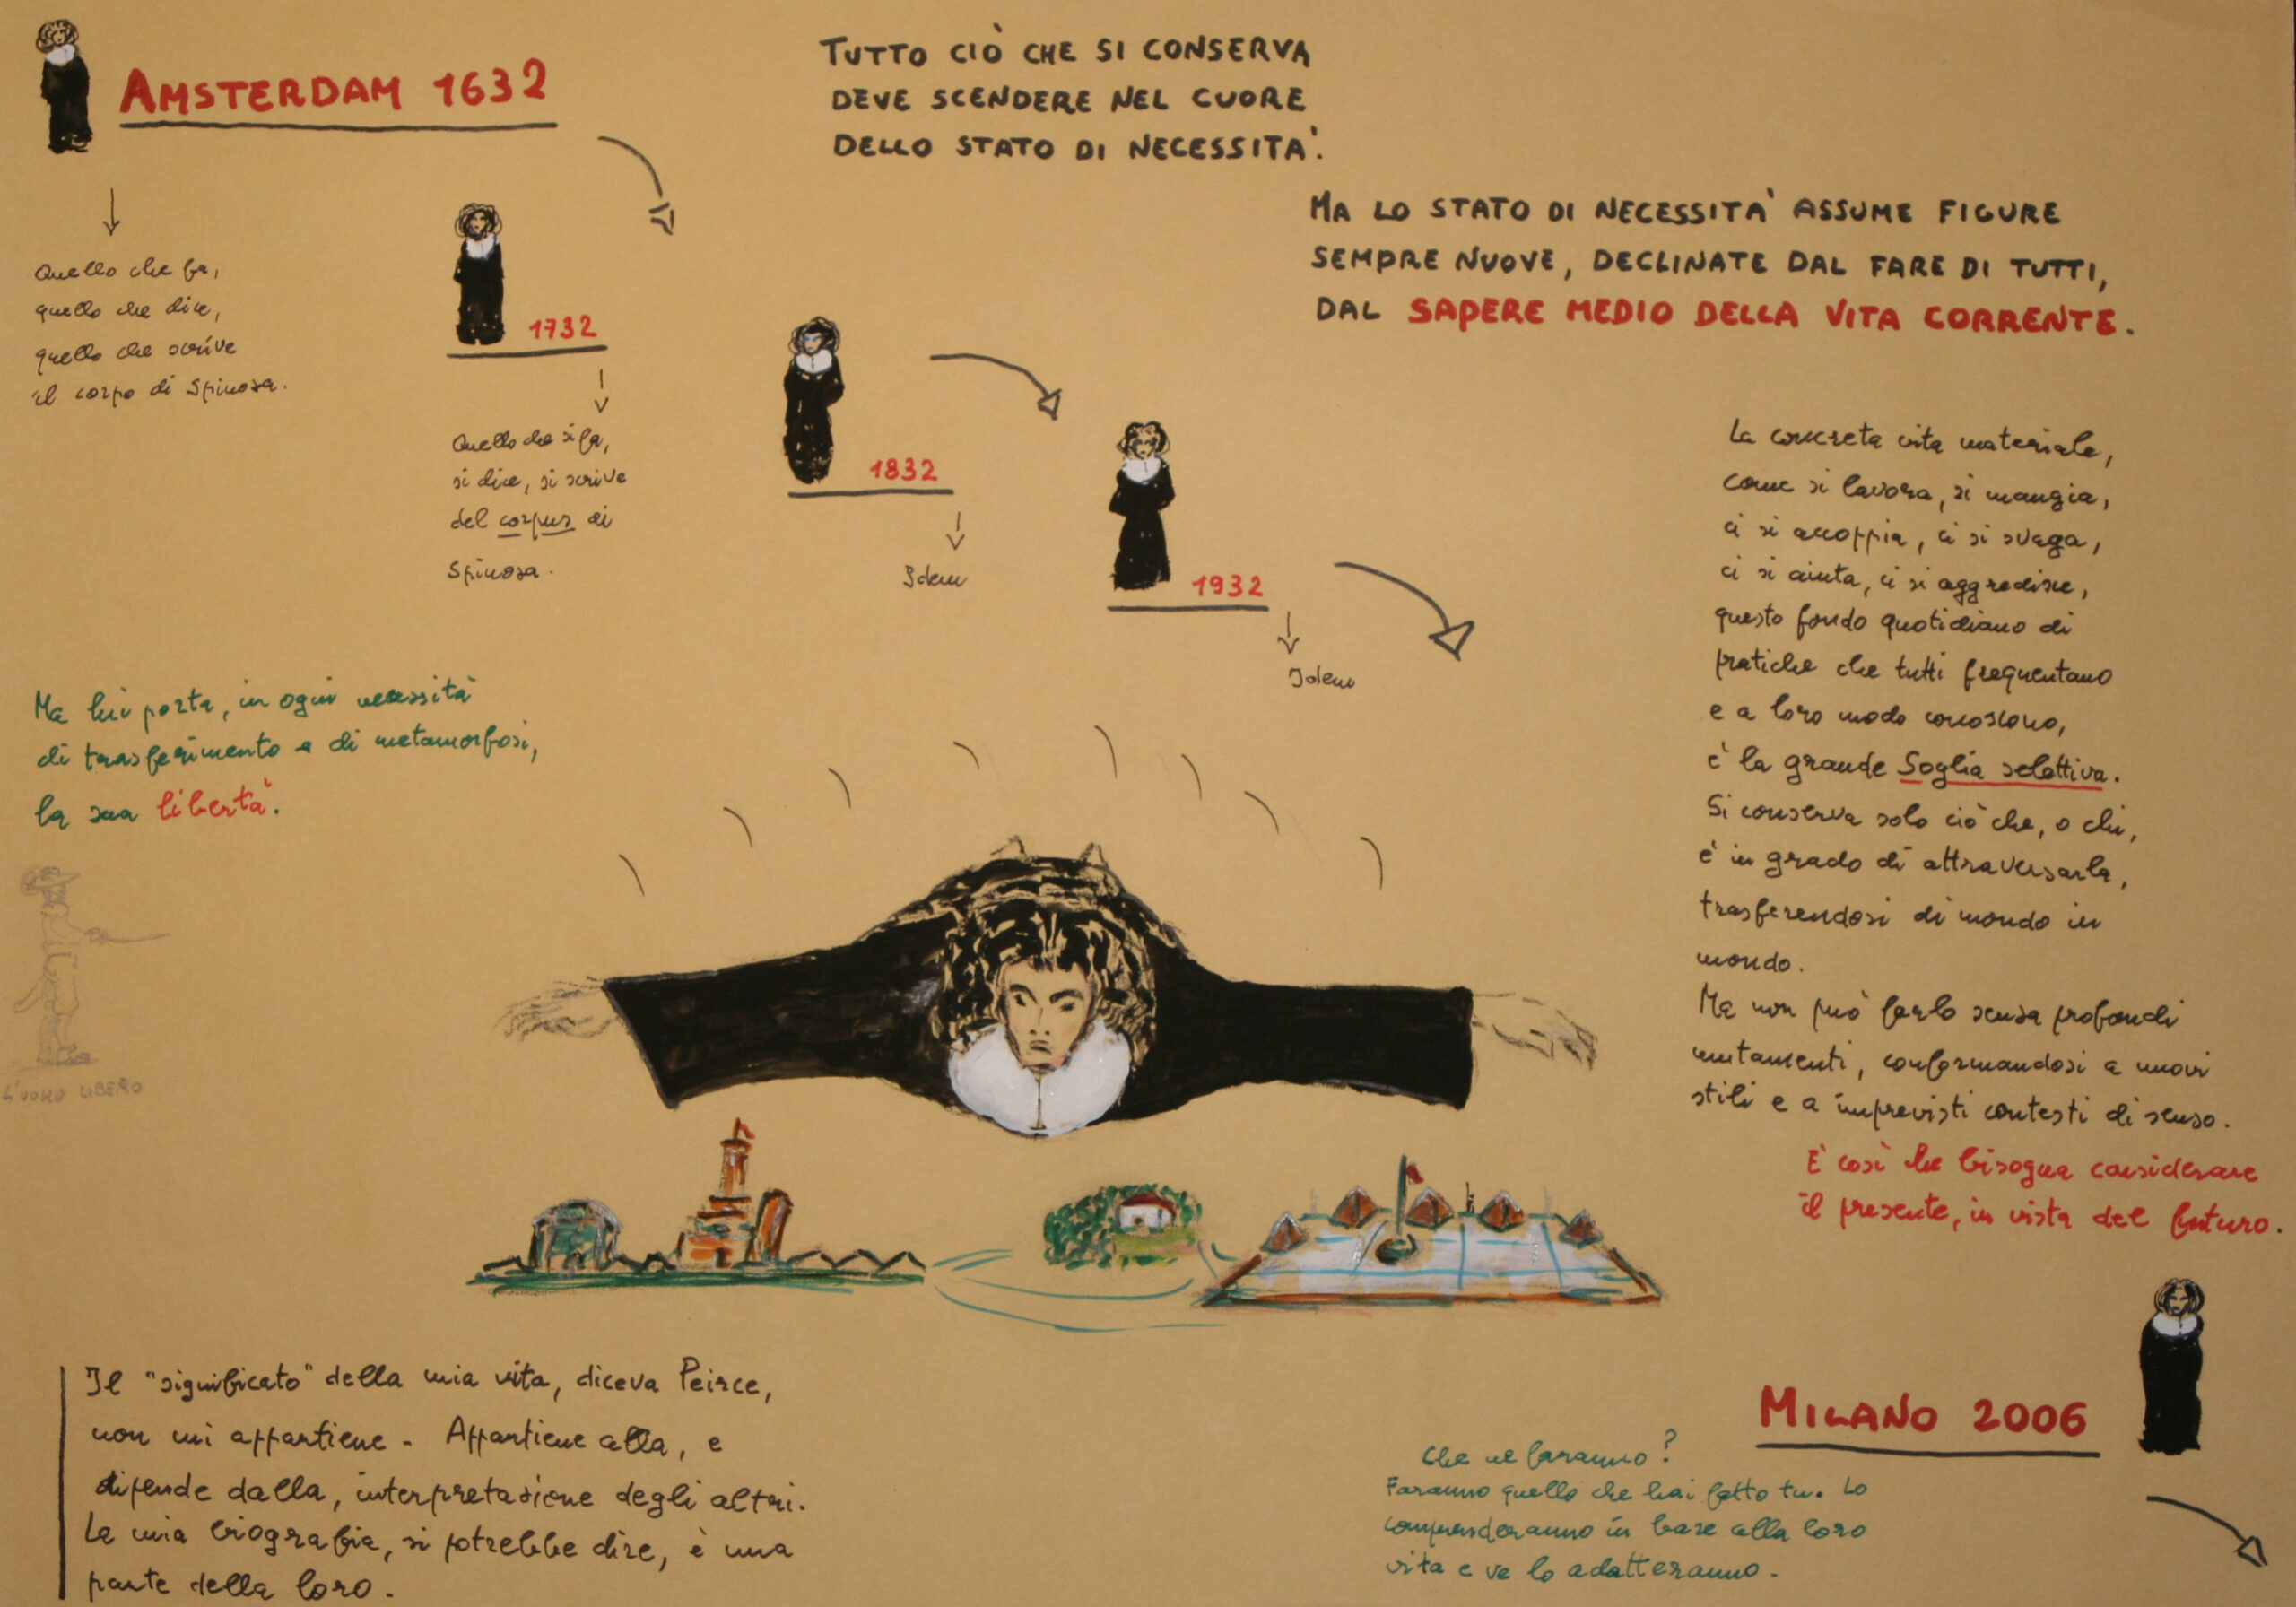 AMSTERDAM 1632
TUTTO CIÒ CHE SI CONSERVA
DEVE SCENDERE NEL CUORE
DELLO STATO DI NECESSITA'.
MA LO STATO DI NECESSITA' ASSUME FIGURE
SEMPRE NUOVE, DECLINATE DAL FARE DI TUTTI,
DAL SAPERE MEDIO DELLA VITA CORRENTE.
Quello che fa,
quello che dice,
quello che scrive
il corpo di Spinosa.
1732
Quello che si fa,
si dice, si scrive
del corpus di
Spinosa.
1832
Idem
1932
Idem
La concreta vita materiale,
come si lavora, si mangia,
ci si accoppia, ci si svaga,
ci si aiuta, ci si aggredisce,
questo fondo quotidiano di
pratiche che tutti frequentano
e a loro modo conoscono,
è la grande Soglia selettiva.
Si conserva solo ciò che, o chi,
è in grado di attraversarla,
trasferendosi di mondo in
mondo.
Ma non può farlo senza profondi
mutamenti, conformandosi a nuovi
stili e a imprevisti contesti di senso.
E' così che bisogna considerare
il presente, in vista del futuro.
Ma lui porta, in ogni necessità
di trasferimento e di metamorfosi,
la sua libertà.
L'UOMO LIBERO
Il "significato" della mia vita, diceva Peirce,
non mi appartiene - Appartiene alla, e
dipende dalla, interpretazione degli altri.
La mia biografia, si potrebbe dire, è una
parte della loro.
MILANO 2006
Che ne faranno?
Faranno quello che hai fatto tu. Lo
comprenderanno in base alla loro
vita e ve lo adatteranno.